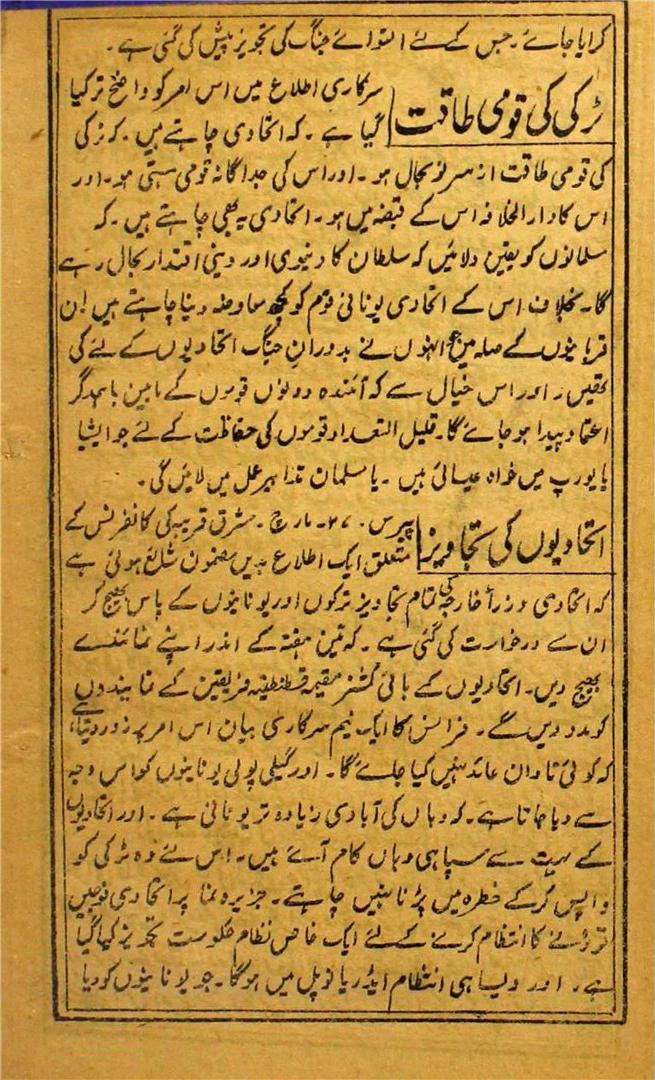 کرایا جائے۔ جس کے لئے التوائے جنگ کی تجویز پیش کی گئی ہے۔
ٹرکی کی قومی طاقت
سرکاری اطلاع میں اس امر کو واضح تر کیا
گیا ہے۔ کہ اتحادی چاہتے ہیں۔ کہ ٹرکی
کی قومی طاقت از سر نو بحال ہو۔ اور اس کی جداگانہ قومی ہستی ہو۔ اور
اس کا دار الخلافہ اس کے قبضہ میں ہو۔ اتحادی یہ بھی چاہتے ہیں۔ کہ
مسلمانوں کو یقین دلائیں کہ سلطان کا دنیوی اور دینی اقتدار بحال رہے
گا۔ بخلاف اس کے اتحادی یونانی قوم کو کچھ معاوضہ دینا چاہتے ہیں ان
قربانیوں کے صلہ میں جو انہوں نے بدوران جنگ اتحادیوں کے لئے کی
تھیں۔ اور اس خیال سے کہ آئندہ دونوں قوموں کے مابین باہمدگر
اعتماد پیدا ہو جائے گا۔ قلیل التعداد قوموں کی حفاظت کے لئے جو ایشیا
یا یورپ میں خواہ عیسائی ہیں۔ یا مسلمان تدابیر عمل میں لائیں گی۔
اتحادیوں کی تجاویز
پیرس۔ ۲۷۔ مارچ۔ مشرق قریبہ کی کانفرنس کے
متعلق ایک اطلاع بدیں مضمون شائع ہوئی ہے
کہ اتحادی وزرأ خارجہ کی تمام تجاویز ترکوں اور یونانیوں کے پاس بھیج کر
ان سے درخواست کی گئی ہے۔ کہ تین ہفتہ کے اندر اپنے نمائندے
بھیج دیں۔ اتحادیوں کے ہائی کمشنر مقیمہ قسطنطنیہ فریقین کے نمایندوں
کو مدد دیں گے۔ فرانس کا ایک نیم سرکاری بیان اس امر پر زور دیتا ہے
کہ کوئی تاوان عائد نہیں کیا جائے گا۔ اور گیلی پولی یونانیوں کو اس وجہ
سے دیا جاتا ہے۔ کہ وہاں کی آبادی زیادہ تر یونانی ہے۔ اور اتحادیوں
کے بہت سے سپاہی وہاں کام آئے ہیں۔ اس لئے وہ ٹرکی کو
واپس کر کے خطرہ میں پڑنا نہیں چاہتے۔ جزیرہ نما پر اتحادی فوجیں
اتارنے کا انتظام کرنے کے لئے ایک خاص نظام حکومت تجویز کیا گیا
ہے۔ اور ویسا ہی انتظام ایڈریانوپل میں ہو گا۔ جو یونانیوں کو دیا